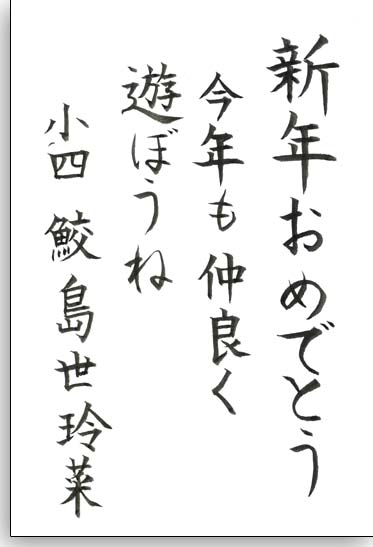 新年おめでとう
今年も仲良く
遊ぼうね
小四 鮫島世玲菜